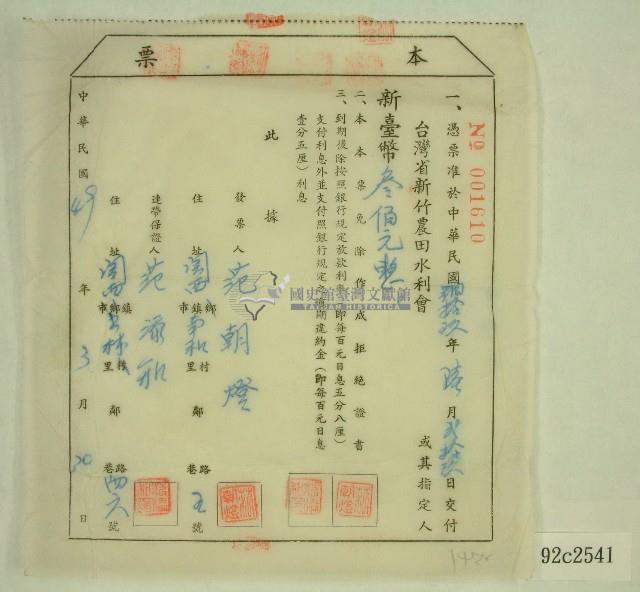 本票
№ 001610
一、憑票准於中華民國肆拾玖年陸月 日交付
台灣省新竹農田水利會 或其指定人
新臺幣叁佰元整
二、本本票免除作成拒絕證書
三、到期後除按照銀行規定放款利率(即每百元日息五分八厘)
支付利息外並支付照銀行規定之逾期違約金(即每百元日息
壹分五厘)利息
此據
發票人 范朝燈
住址 關西 鎮鄉市 南和 村里 鄰 路巷 五號
連帶保證人 范添和
住址 關西 鎮鄉市 村里 鄰 路巷 四六號
中華民國49年3月30日
國史館臺灣文獻館
TAIWAN HISTORICA
92c2541